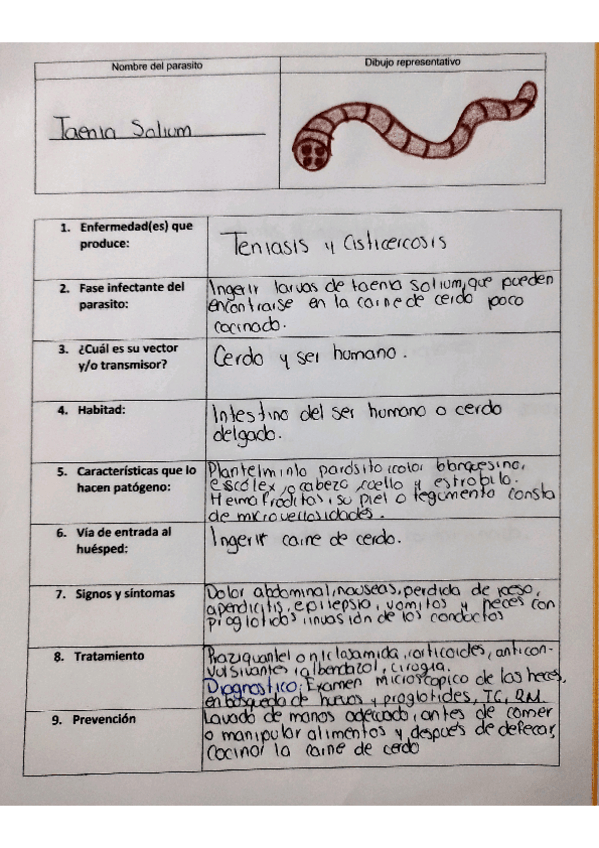 Nombre del parasito
Dibujo representativo
Taenia Solium
1. Enfermedad(es) que
produce:
Teniasis y Cisticercosis
2. Fase infectante del
parasito:
Ingerir larvas de taenia solium, que pueden
encontrarse en la carne de cerdo poco
cocinado.
3. ¿Cuál es su vector
y/o transmisor?
Cerdo y ser humano.
4. Habitad:
Intestino del ser humano o cerdo
delgado.
5. Características que lo
hacen patógeno:
Plantelminto parásito, color blanquesino,
escólex o cabeza, cuello y estrobilo.
Hemafroditos, su piel o tegumento consta
de microvellosidades.
6. Vía de entrada al
huésped:
Ingerir carne de cerdo.
7. Signos y síntomas
Dolor abdominal, nauseas, perdida de peso,
apendicitis, epilepsia, vomitos y heces con
proglotidos, invasión de los conductos
8. Tratamiento
Praziquantel o niclosamida, corticoides, anticon-
vulsivantes, albendazol, cirugía.
Diagnostico: Examen microscopico de las heces,
en busqueda de huevos y proglotides, TC, RM.
9. Prevención
Lavado de manos adecuado, antes de comer
o manipular alimentos y después de defecar,
cocinar la carne de cerdo